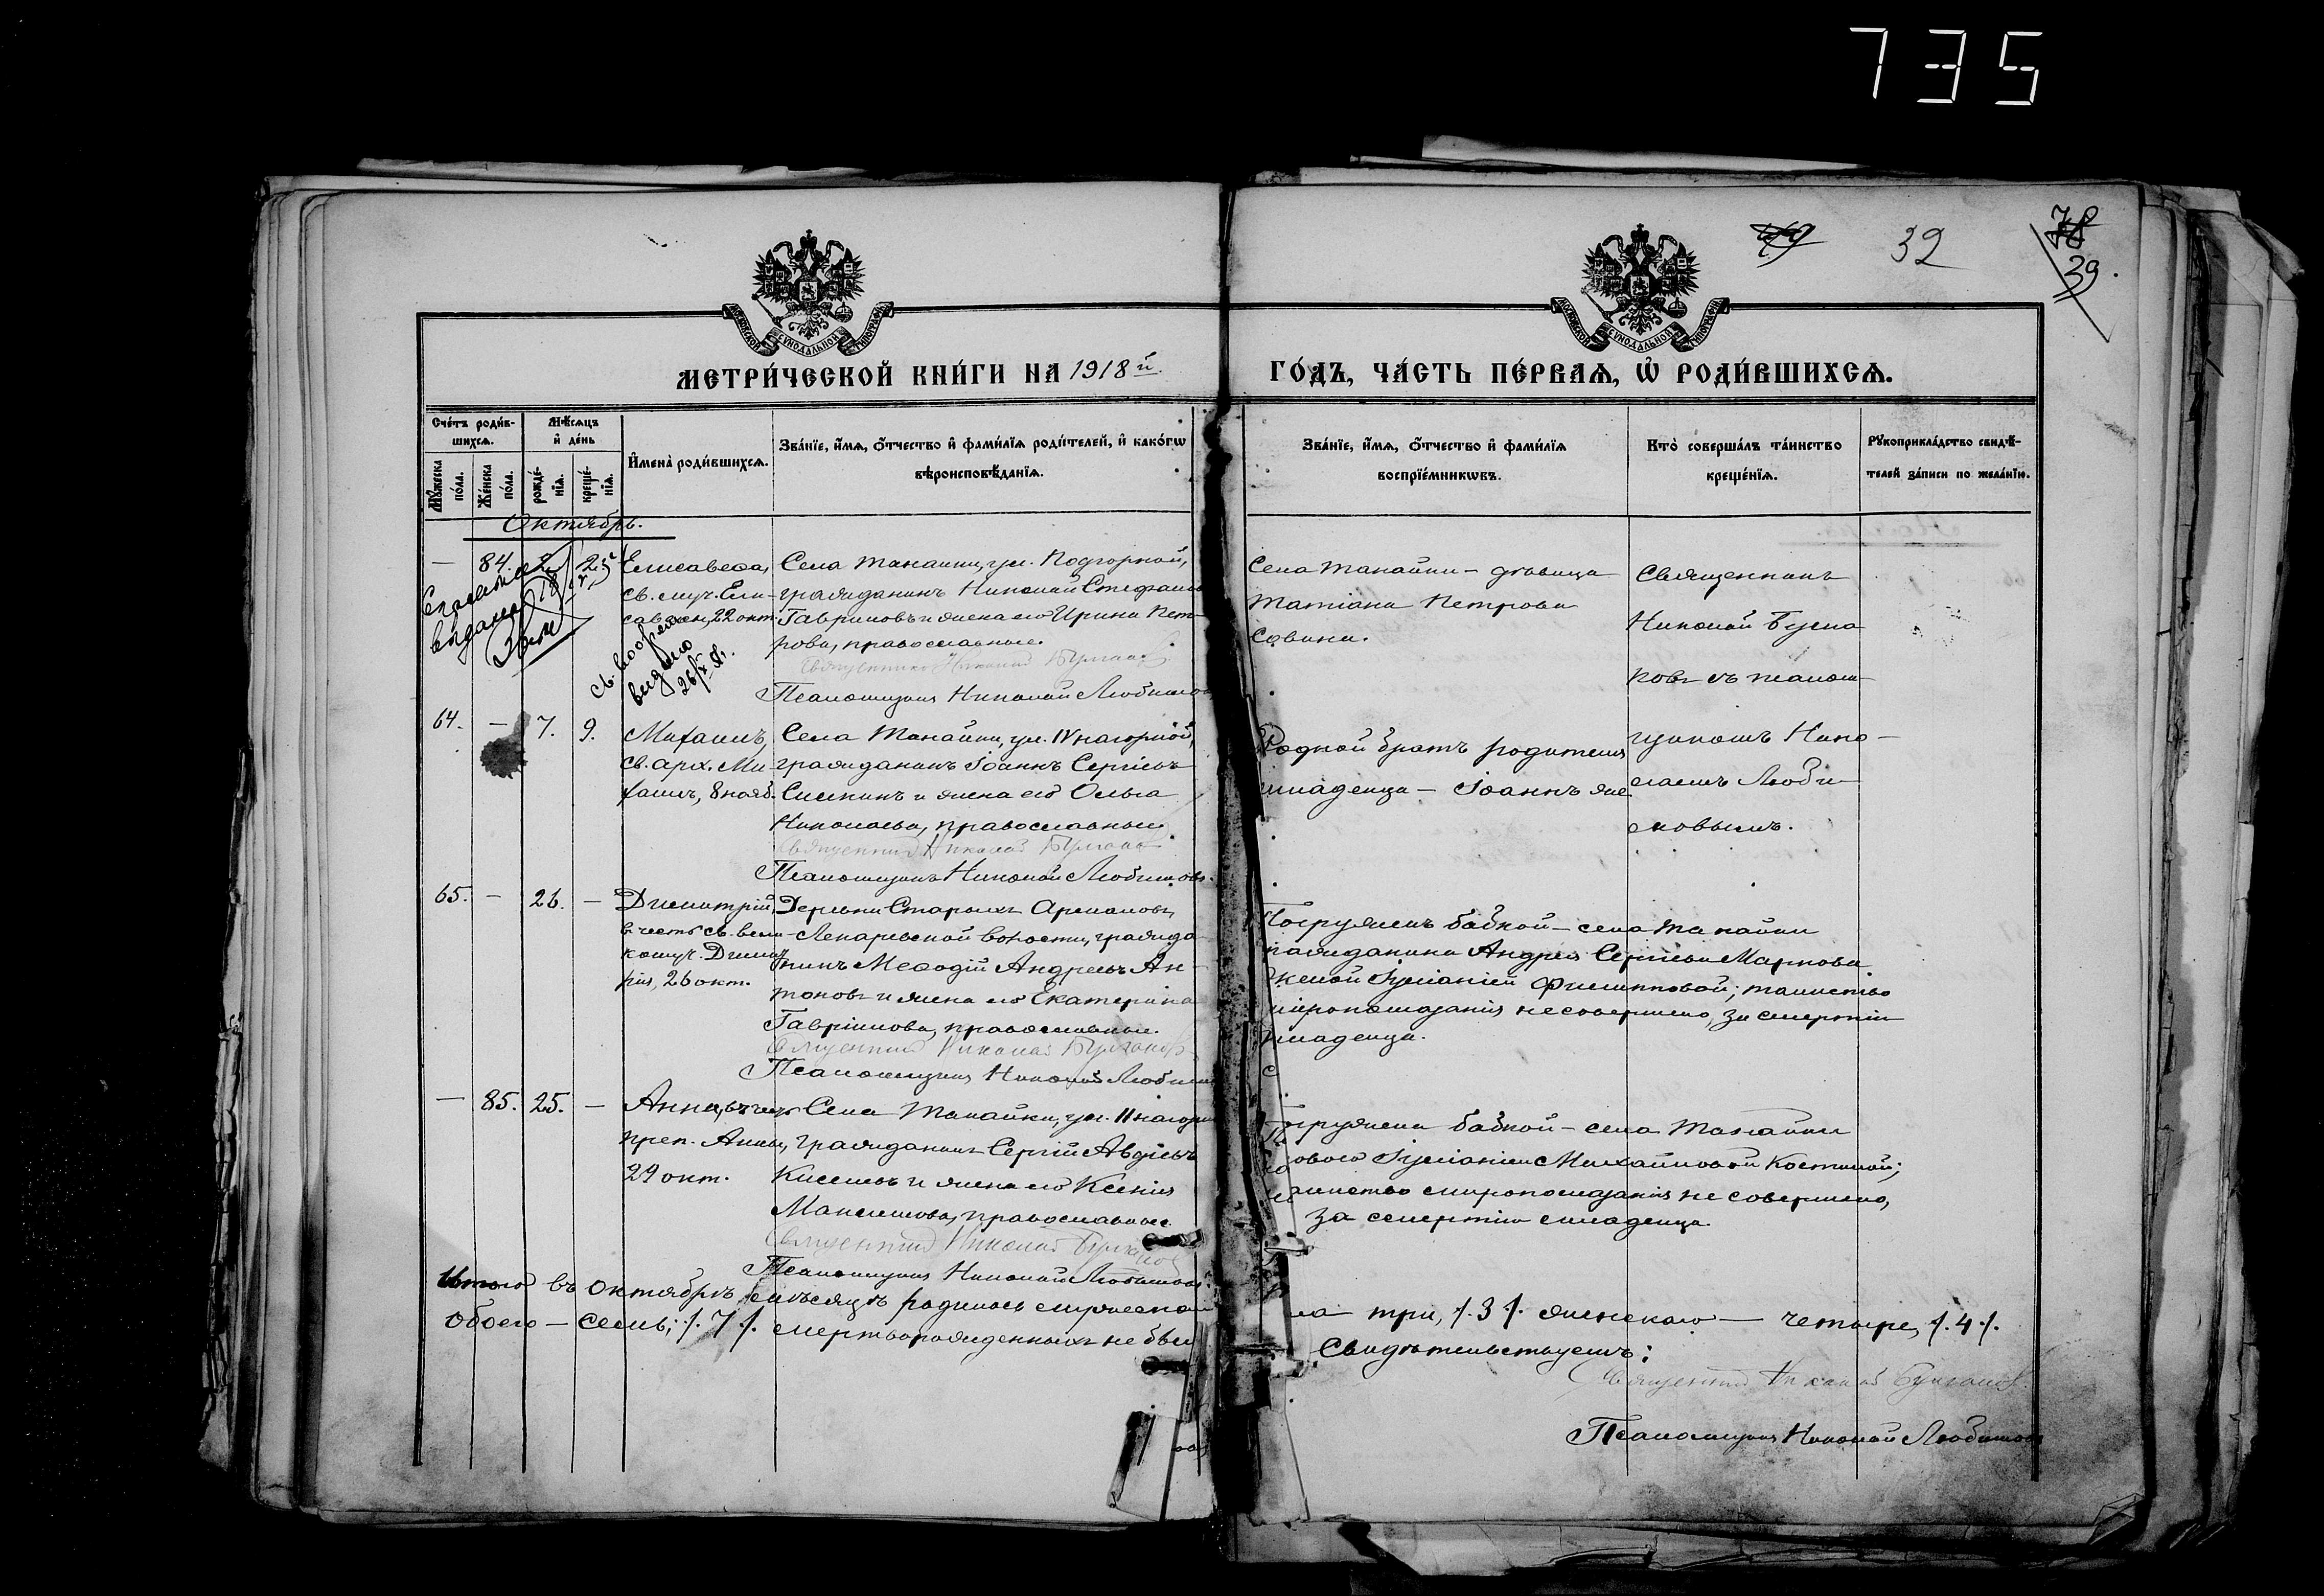 735
78
49
32
39.
МОСКОВСКОЙ СѴНОДАЛЬНОЙ ТИПОГРАФІИ
МОСКОВСКОЙ СѴНОДАЛЬНОЙ ТИПОГРАФІИ
МЕТРИ́ЧЕСКОЙ КНИ́ГИ НА 1918й.
ГО́ДЪ, ЧА́СТЬ ПЕ́РВАѦ, Ѡ҆ РОДИ́ВШИХСѦ.
Сче́тъ роди́в-
шихсѧ.
Мꙋ́жеска по́ла.
Же́нска по́ла.
Мѣ́сѧцъ и҆ де́нь
рожде́-нїѧ.
креще́-нїѧ.
И҆мена̀ роди́вшихсѧ.
Зва́нїе, и҆́мѧ, ѻ҆́тчество и҆ фами́лїѧ роди́телей, и҆ како́гѡ
вѣроисповѣ́данїѧ.
Зва́нїе, и҆́мѧ, ѻ҆́тчество и҆ фами́лїѧ
воспрїе́мникѡвъ.
Кто̀ соверша́лъ та́инство
креще́нїѧ.
Рꙋкоприкла́дство свидѣ́-
телей за́писи по жела́нїю.
Октябрь.
— 84. 2 25 Елисавета,
св. муч. Ели-
саветы, 22 окт.
Села Танайки, ул. Подгорной,
гражданинъ Николай Стефановъ
Гавриловъ и жена его Ирина Пет-
рова, православные.
Священникъ Николай Булгаков
Псаломщикъ Николай Любимовъ
Села Танайки – дѣвица
Татіана Петрова
Савина.
Священникъ
Николай Булга
ковъ съ псалом-
щикомъ Нико-
лаемъ Люби-
мовымъ.
выдано
26/X 18.
64. — 7. 9. Михаилъ,
св. арх. Ми-
хаила, 8 нояб.
Села Танайки, ул. IV нагорной,
гражданинъ Іоаннъ Сергіевъ
и жена его Ольга
Николаева, православные
Священник Николай Булгаков
Псаломщикъ Николай Любимовъ.
Родной братъ родителя
младенца – Іоаннъ же
65. — 26. — Димитрій,
в честь св. вели-
комуч. Димит
рія, 26 окт.
Деревни Старыхъ
волости, гражда
нинъ Меѳодій Андреевъ Ан-
тоновъ и жена его Екатерина
Гавріилова, православные.
Священник Николай Булгаков
Псаломщикъ Николай Любимов
Погруженъ бабкой – села Танайки
гражданина Андрея Сергіева Маркова
женой Іуліаніей Филипповой; таинство
миропомазанія не совершено, за смертію
младенца.
— 85. 25. — Анна, въ честь
преп. Анны,
29 окт.
Села Танайки, ул. II нагорн
гражданинъ Сергій Авдіевъ
Киселевъ и жена его Ксенія
Максимова, православные.
Священник Николай Булгаков
Псаломщикъ Николай Любимовъ.
Погружена бабкой – села Танайки
вдовою Іуліаніей Михайловой Костиной;
таинство миропомазанія не совершено,
за смертію младенца.
Итого въ октябрѣ мѣсяцѣ родилось мужеска
пола три, /. 3 /. женскаго — четыре, /. 4 /.
обоего — семь; /. 7 /. мертворожденныхъ не был
Свидѣтельствуемъ:
Священник Николай Булгаков.
Псаломщикъ Николай Любимовъ